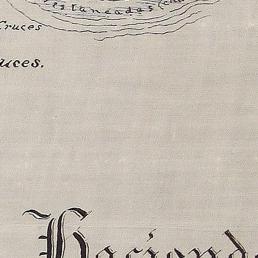 estancadas
Cruces
uces.
Haciend